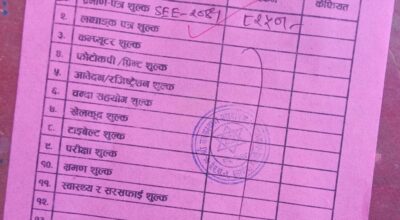 प्रमाण-पत्र शुल्क SEE-२०८१
कैफियत
२. लब्धाङ्क पत्र शुल्क
३. कम्प्यूटर शुल्क
४. फोटोकपी/प्रिन्ट शुल्क
५. आवेदन/रजिष्ट्रेसन शुल्क
६. चन्दा सहयोग शुल्क
७. खेलकूद शुल्क
८. टाइबेल्ट शुल्क
९. परीक्षा शुल्क
१०. भ्रमण शुल्क
११. स्वास्थ्य र सरसफाई शुल्क
१२.